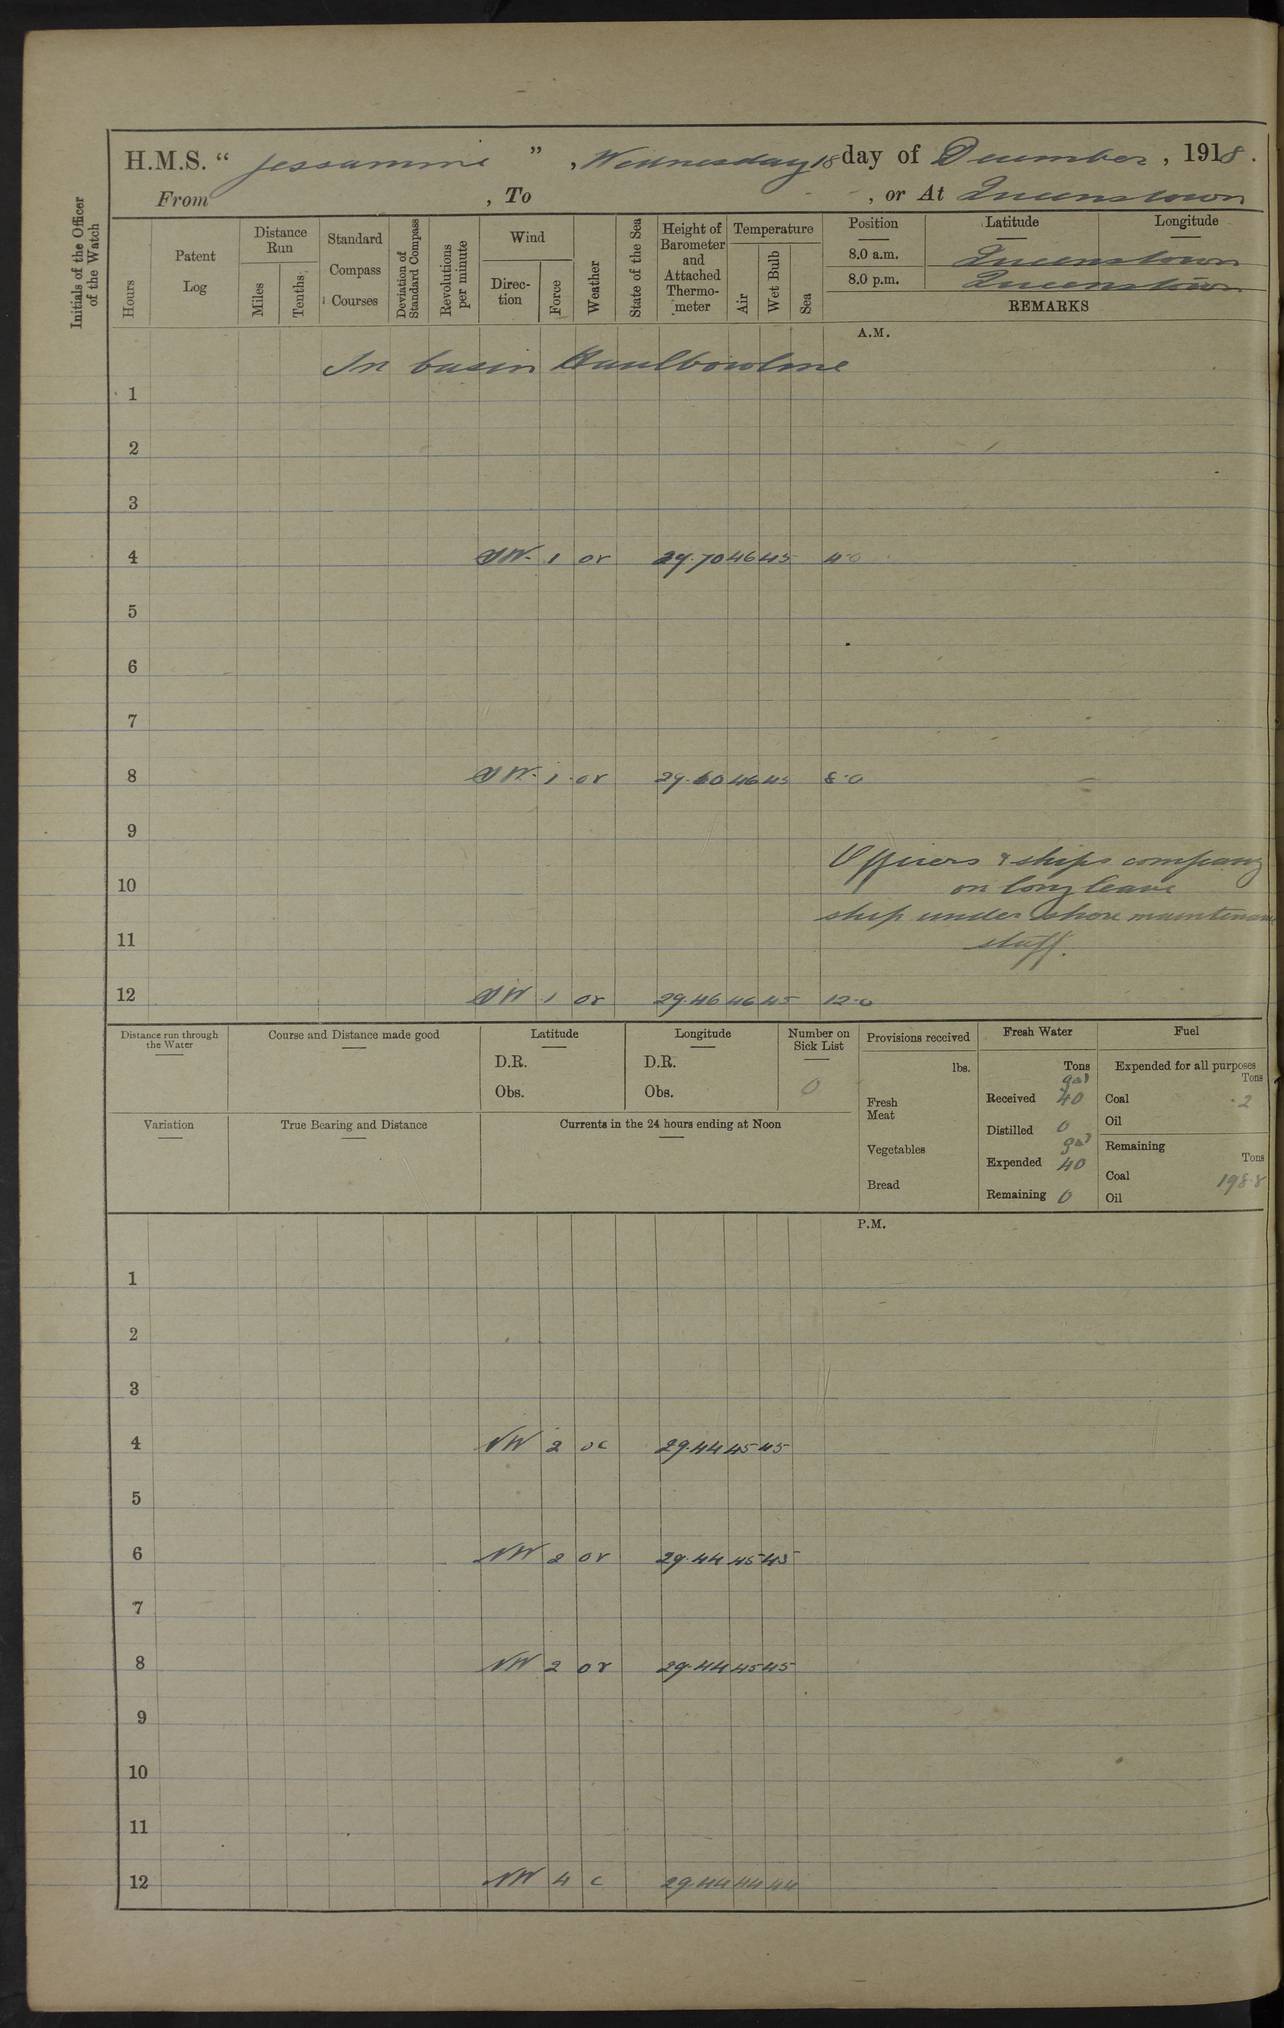 H.M.S. “ Jessamine ” , Wednesday 18 day of December , 1918 .
From , To , or At Queenstown
Initials of the Officer of the Watch
Hours
Patent Log
Distance Run
Miles
Tenths
Standard Compass Courses
Deviation of Standard Compass
Revolutions per minute
Wind
Direc-tion
Force
Weather
State of the Sea
Height of Barometer and Attached Thermo-meter
Temperature
Air
Wet Bulb
Sea
Position Latitude Longitude
8.0 a.m. Queenstown
8.0 p.m. Queenstown
REMARKS
A.M.
In basin Haulbowline
1
2
3
4 SW 1 or 29.70 46 45 4.0
5
6
7
8 SW 1 or 29.60 46 45 8.0
9
Officers & ships company
10 on long leave
ship under shore maintenance
11 staff.
12 SW 1 or 29.46 46 45 12.0
Distance run through the Water
Course and Distance made good
Latitude
D.R.
Obs.
Longitude
D.R.
Obs.
Number on Sick List
0
Variation
True Bearing and Distance
Currents in the 24 hours ending at Noon
Provisions received
lbs.
Fresh Meat
Vegetables
Bread
Fresh Water
Tons
gal
Received 40
Distilled 0
gal
Expended 40
Remaining 0
Fuel
Expended for all purposes
Tons
Coal .2
Oil
Remaining
Tons
Coal 198.8
Oil
P.M.
1
2
3
4 NW 2 oc 29.44 45 45
5
6 NW 2 or 29.44 45 45
7
8 NW 2 or 29.44 45 45
9
10
11
12 NW 4 c 29.44 44 44